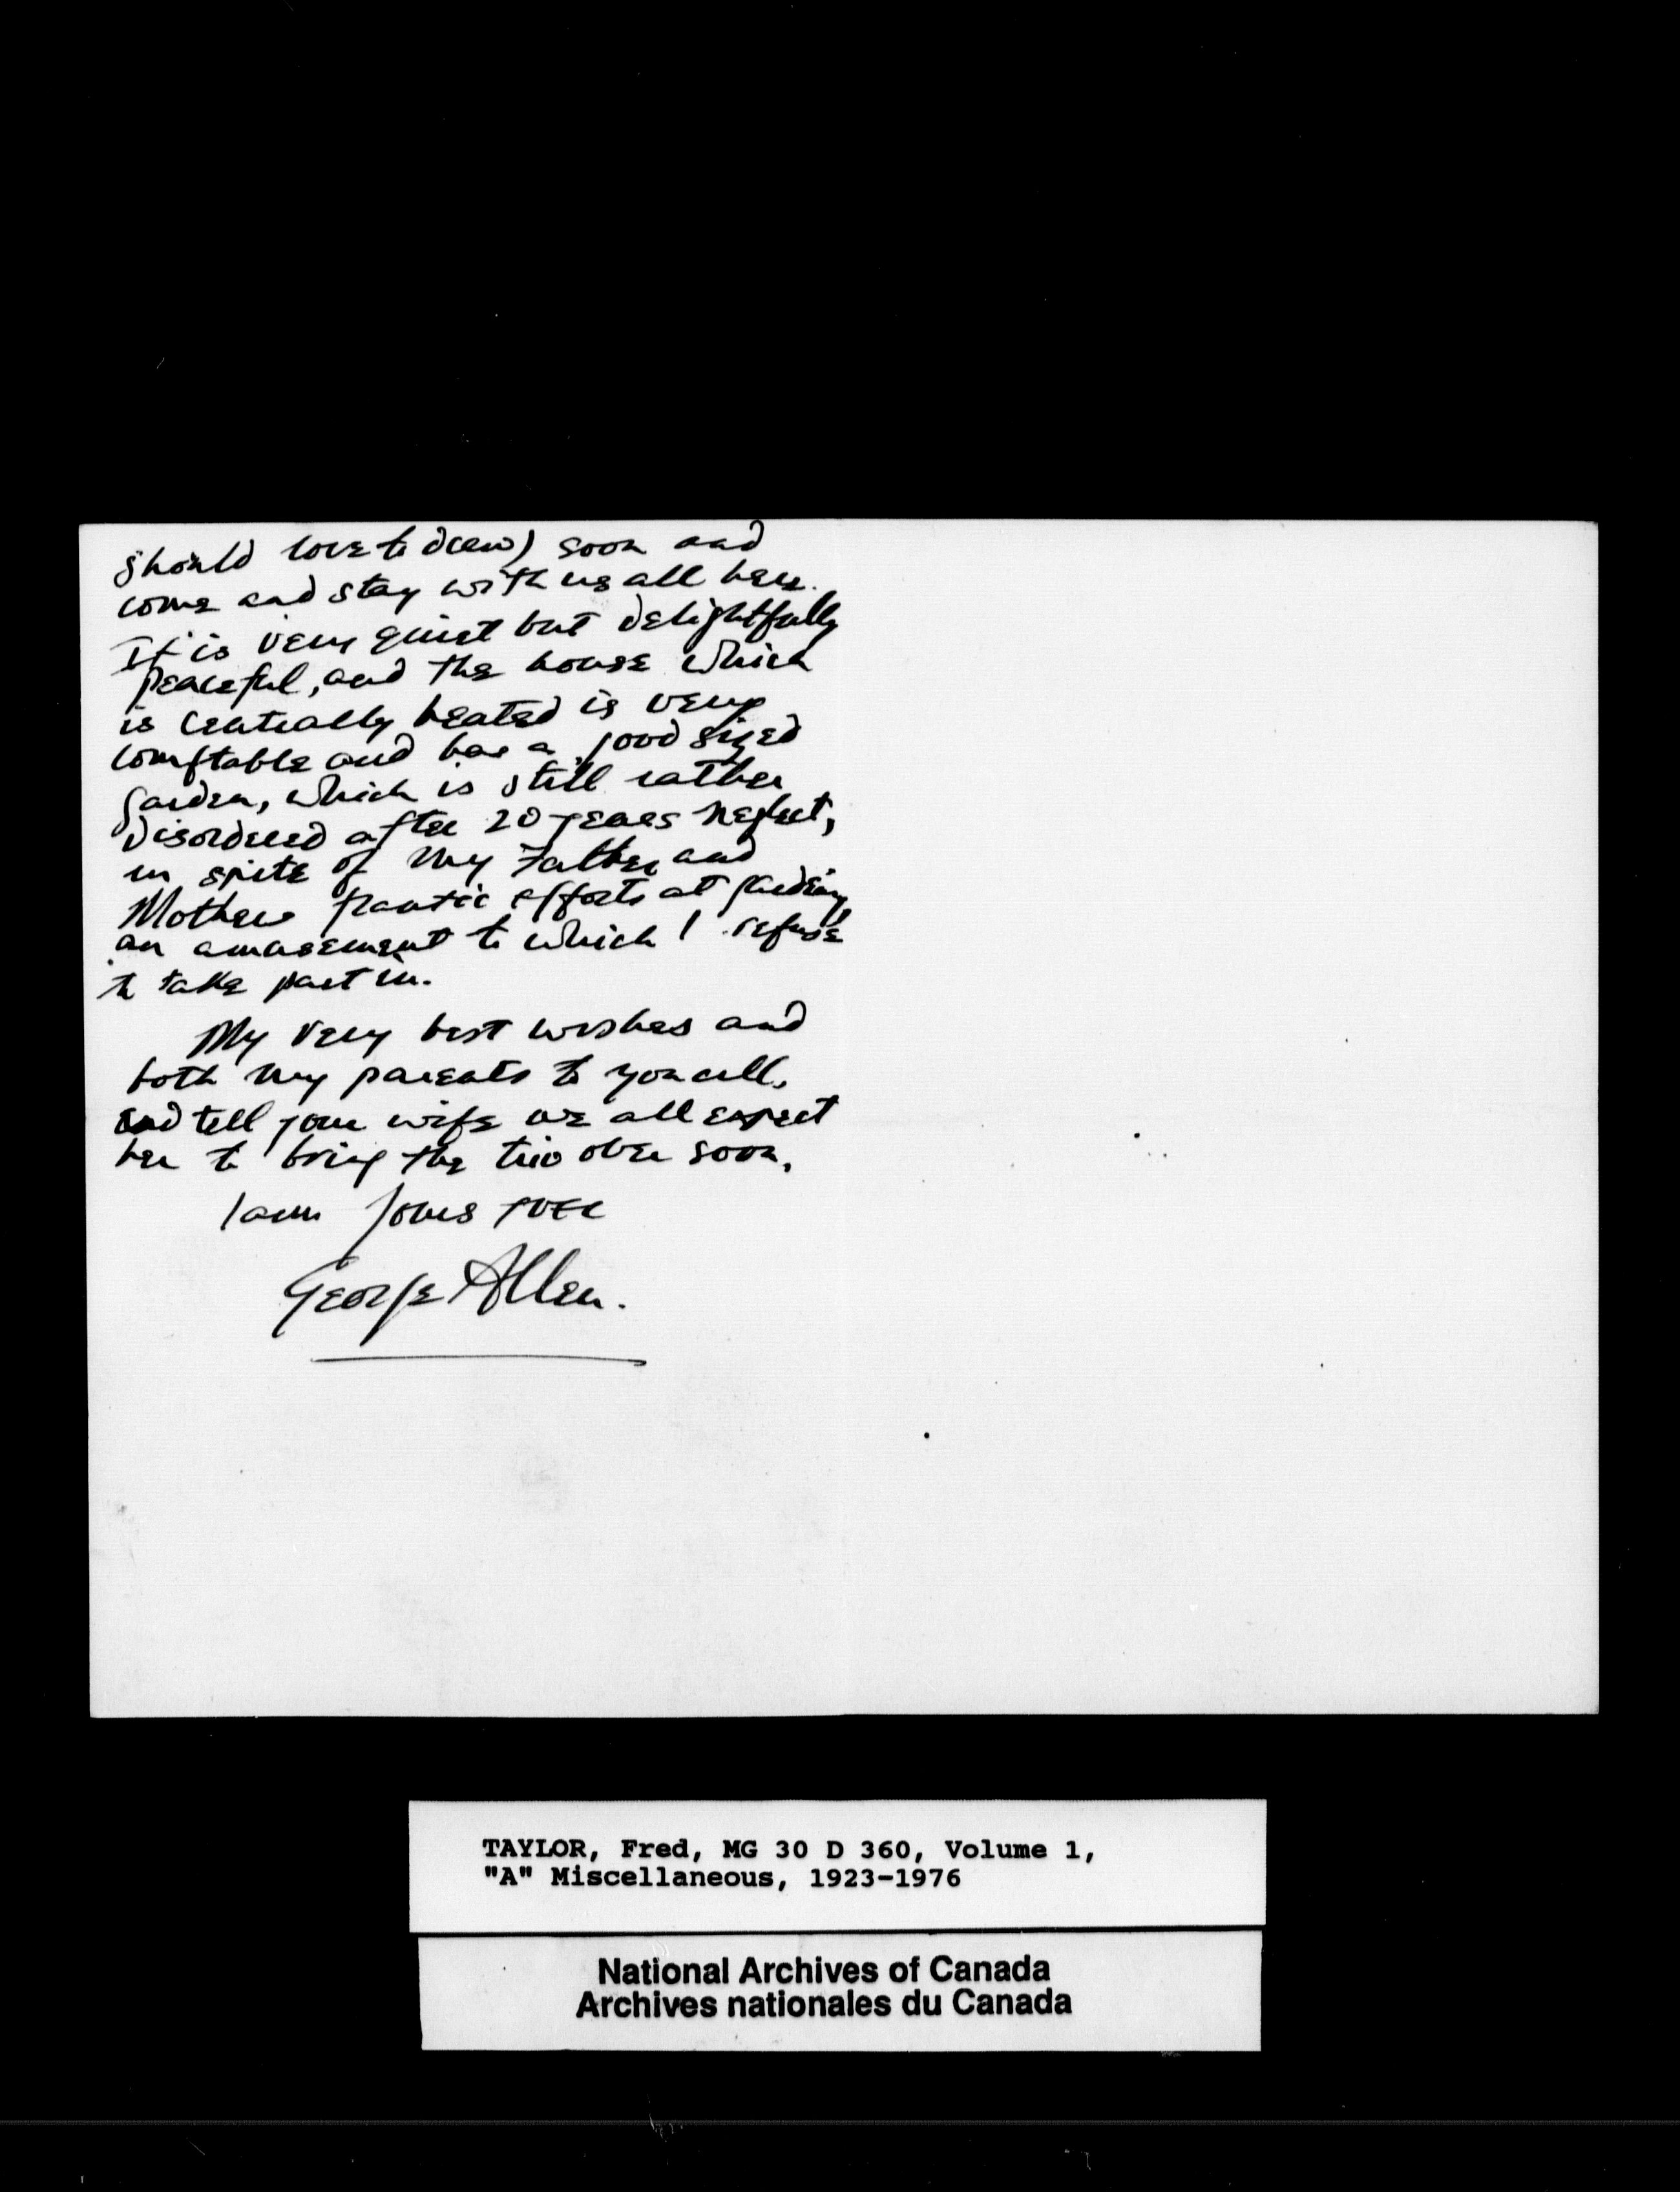 should love to draw) soon and
come and stay with us all here.
It is very quiet but delightfully
peaceful, and the house which
is centrally heated is very
comftable and has a good sized
garden, which is still rather
disordered after 20 years neglect,
in spite of my Father and
Mothers frantic efforts at gardening,
an amusement to which I refuse
to take part in.
My very best wishes and
both my parents to you all,
and tell your wife we all expect
her to bring the trio over soon.
I am Yours ever
George Allen.
TAYLOR, Fred, MG 30 D 360, Volume 1,
"A" Miscellaneous, 1923-1976
National Archives of Canada
Archives nationales du Canada